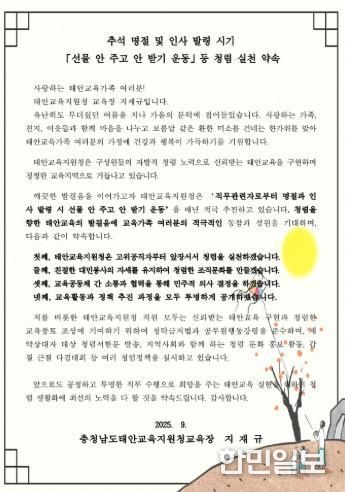 추석 명절 및 인사 발령 시기
「선물 안 주고 안 받기 운동」등 청렴 실천 약속
사랑하는 태안교육가족 여러분!
태안교육지원청 교육장 지재규입니다.
유난히도 무더웠던 여름을 지나 가을의 문턱에 접어들었습니다. 사랑하는 가족,
친지, 이웃들과 함께 마음을 나누고 보름달 같은 환한 미소를 건네는 한가위를 맞아
태안교육가족 여러분의 가정에 건강과 행복이 가득하기를 기원합니다.
태안교육지원청은 구성원들의 자발적 청렴 노력으로 신뢰받는 태안교육을 구현하며
청정한 교육지역으로 거듭나고 있습니다.
깨끗한 발걸음을 이어가고자 태안교육지원청은 '직무관련자로부터 명절과 인
사 발령 시 선물 안 주고 안 받기 운동'을 매년 적극 추진하고 있습니다. 청렴을
향한 태안교육의 발걸음에 교육가족 여러분의 적극적인 동참과 성원을 기대하며,
다음과 같이 약속합니다.
첫째, 태안교육지원청은 고위공직자부터 앞장서서 청렴을 실천하겠습니다.
둘째, 친절한 대민봉사의 자세를 유지하여 청렴한 조직문화를 만들겠습니다.
셋째, 교육공동체 간 소통과 협력을 통해 민주적 의사 결정을 하겠습니다.
넷째, 교육활동과 정책 추진 과정을 모두 투명하게 공개하겠습니다.
저를 비롯한 태안교육지원청 직원 모두는 신뢰받는 태안교육 구현과 청렴한
교육풍토 조성에 기여하기 위하여 청탁금지법과 공무원행동강령을 준수하며, 계
약상대자 대상 청렴서한문 발송, 지역사회와 함께 하는 청렴 문화 홍보 활동, 갑
질 근절 다짐대회 등 여러 청렴정책을 실시하고 있습니다.
앞으로도 공정하고 투명한 직무 수행으로 희망을 주는 태안교육 실현을 위하여 청
렴 생활화에 최선의 노력을 다 할 것을 약속드립니다. 감사합니다.
2025. 9.
충청남도태안교육지원청교육장 지 재 규
한민일보